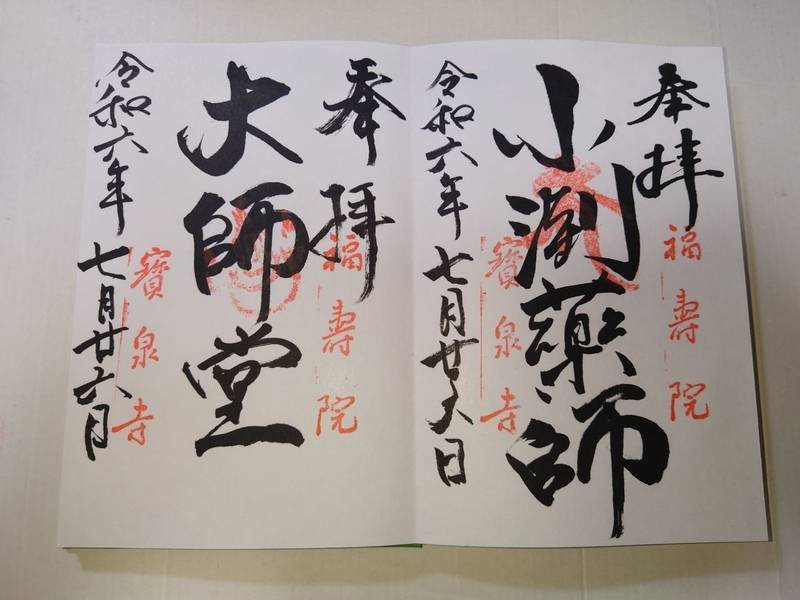 奉拝
福壽院
小渕薬師
寶泉寺
令和六年七月廿六日
奉拝
福壽院
大師堂
寶泉寺
令和六年七月廿六日